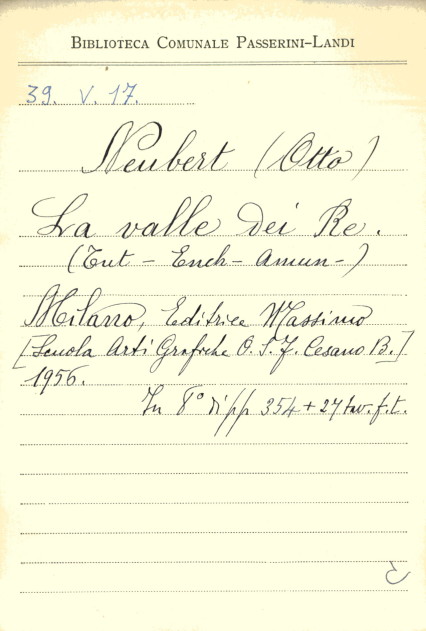 BIBLIOTECA COMUNALE PASSERINI-LANDI
39. V. 17.
Neubert (Otto)
La valle dei Re.
(Tut - Ench - Amun -)
Milano, Editrice Massimo
[Scuola Arti Grafiche O. S. F. Cesano B.]
1956.
In 8° di pp 354 + 27 tav. f. t.